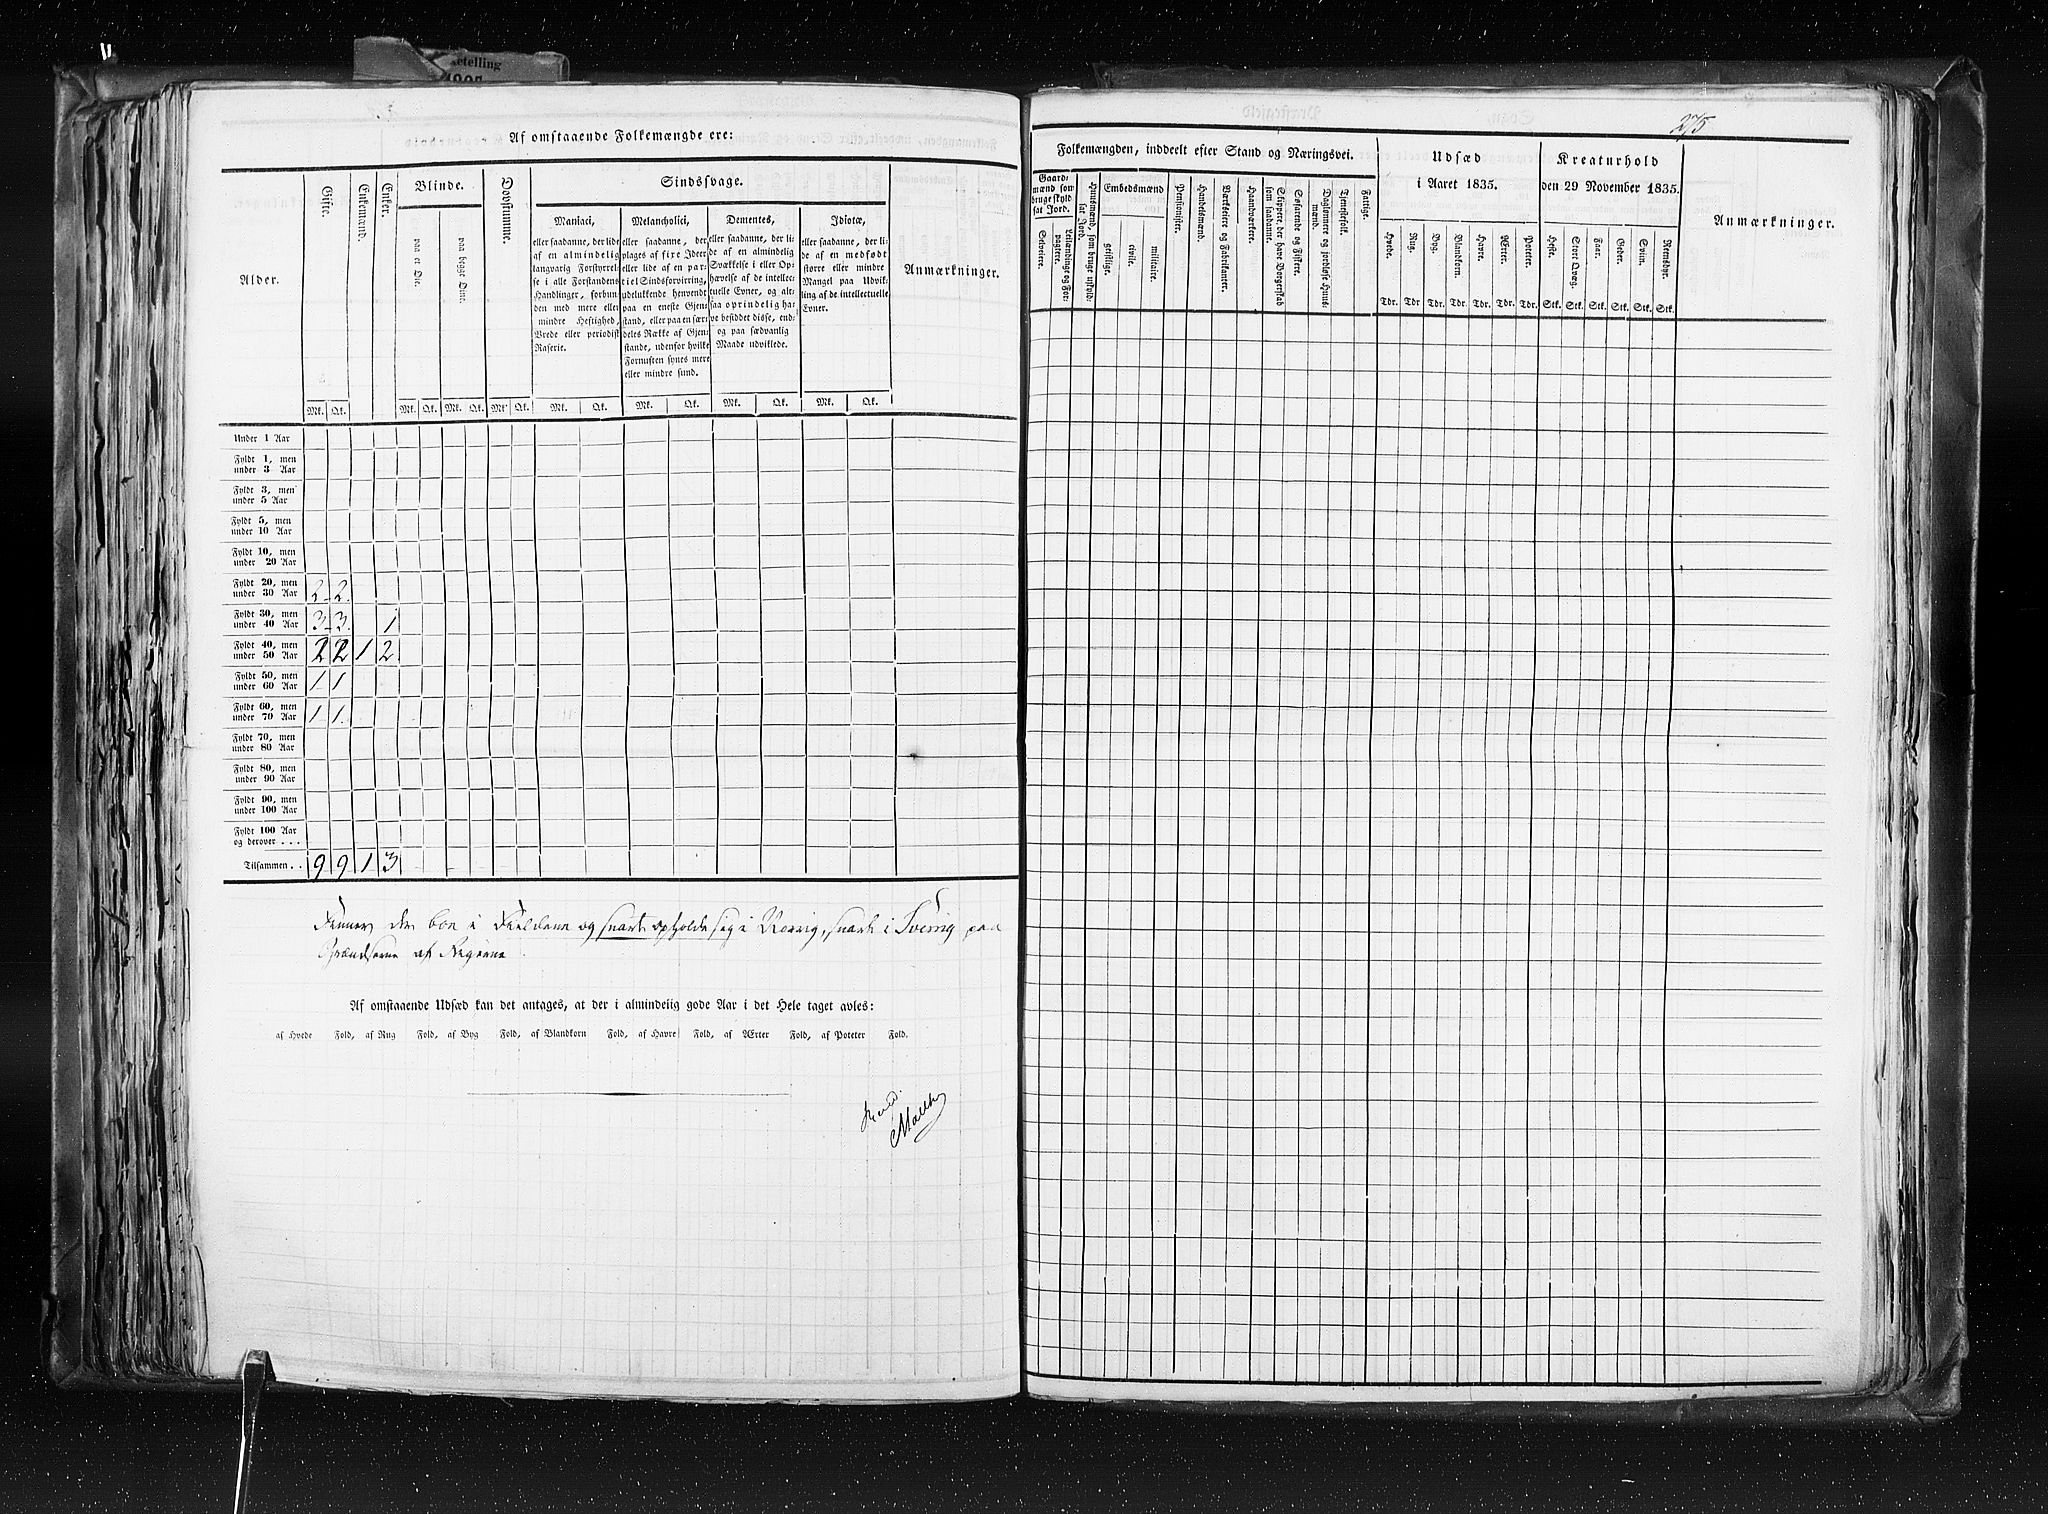 ketelling
Af omstaaende Folkemængde ere:
Alder.
Gifte.
Enkemænd.
Enker.
Blinde.
paa et Øie.
paa begge Øine.
Døvstumme.
Sindssvage.
Maniaci,
eller saadanne, der lide
af en almindelig
langvarig Forstyrrel-
se i alle Forstandens
Handlinger, forbun-
den med mere eller
mindre Heftighed,
Vrede eller periodisk
Raserie.
Melancholici,
eller saadanne, der
plages af fixe Ideer
eller lide af en par-
tiel Sindsforvirring,
udelukkende henvendt
paa en eneste Gjen-
stand, eller paa en sær-
deles Række af Gjen-
stande, udenfor hvilke
Fornuften synes mere
eller mindre sund.
Dementes,
eller saadanne, der li-
de af en almindelig
Svækkelse i eller Op-
hævelse af de intellec-
tuelle Evner, og alt-
saa oprindelig ha-
ve besiddet disse, end-
og paa sædvanlig
Maade udviklede.
Idiotæ,
eller saadanne, der li-
de af en medfødt
større eller mindre
Mangel paa Udvik-
ling af de intellectuelle
Evner.
Anmærkninger.
Mk. Qk. Mk. Qk. Mk. Qk. Mk. Qk. Mk. Qk. Mk. Qk. Mk. Qk. Mk. Qk.
Under 1 Aar
Fyldt 1, men
under 3 Aar
Fyldt 3, men
under 5 Aar
Fyldt 5, men
under 10 Aar
Fyldt 10, men
under 20 Aar
Fyldt 20, men
under 30 Aar 2 2.
Fyldt 30, men
under 40 Aar 3 3. 1
Fyldt 40, men
under 50 Aar 2 2 1 2
Fyldt 50, men
under 60 Aar 1 1
Fyldt 60, men
under 70 Aar 1 1.
Fyldt 70, men
under 80 Aar
Fyldt 80, men
under 90 Aar
Fyldt 90, men
under 100 Aar
Fyldt 100 Aar
og derover . . .
Tilsammen . . 9 9 1 3
Finner der boe i Fieldene og snart opholde sig i Norrig, snart i Sverrig paa
Grændserne af
Af omstaaende Udsæd kan det antages, at der i almindelig gode Aar i det Hele taget avles:
af Hvede Fold, af Rug Fold, af Byg Fold, af Blandkorn Fold, af Havre Fold, af Ærter Fold, af Poteter Fold.
275
Folkemængden, inddeelt efter Stand og Næringsvei.
Gaard-
mænd som
bruge skyld-
sat Jord.
Selveiere.
Leilændinge og For-
pagtere.
Huusmænd, som bruge uskyld-
sat Jord.
Embedsmænd
geistlige.
civile.
militaire.
Pensionister.
Handelsmænd.
Værkseiere og Fabrikanter.
Haandværkere.
Skippere, der have Borgerskab
som saadanne.
Søfarende og Fiskere.
Daglønnere og jordløse Huus-
mænd.
Tjenestefolk.
Fattige.
Udsæd
i Aaret 1835.
Hvede.
Rug.
Byg.
Blandkorn.
Havre.
Ærter.
Poteter.
Tdr. Tdr Tdr. Tdr. Tdr. Tdr. Tdr.
Kreaturhold
den 29 November 1835.
Heste.
Stort Qvæg.
Faar.
Geder.
Sviin.
Rensdyr.
Stk. Stk. Stk. Stk. Stk. Stk.
Anmærkninger.